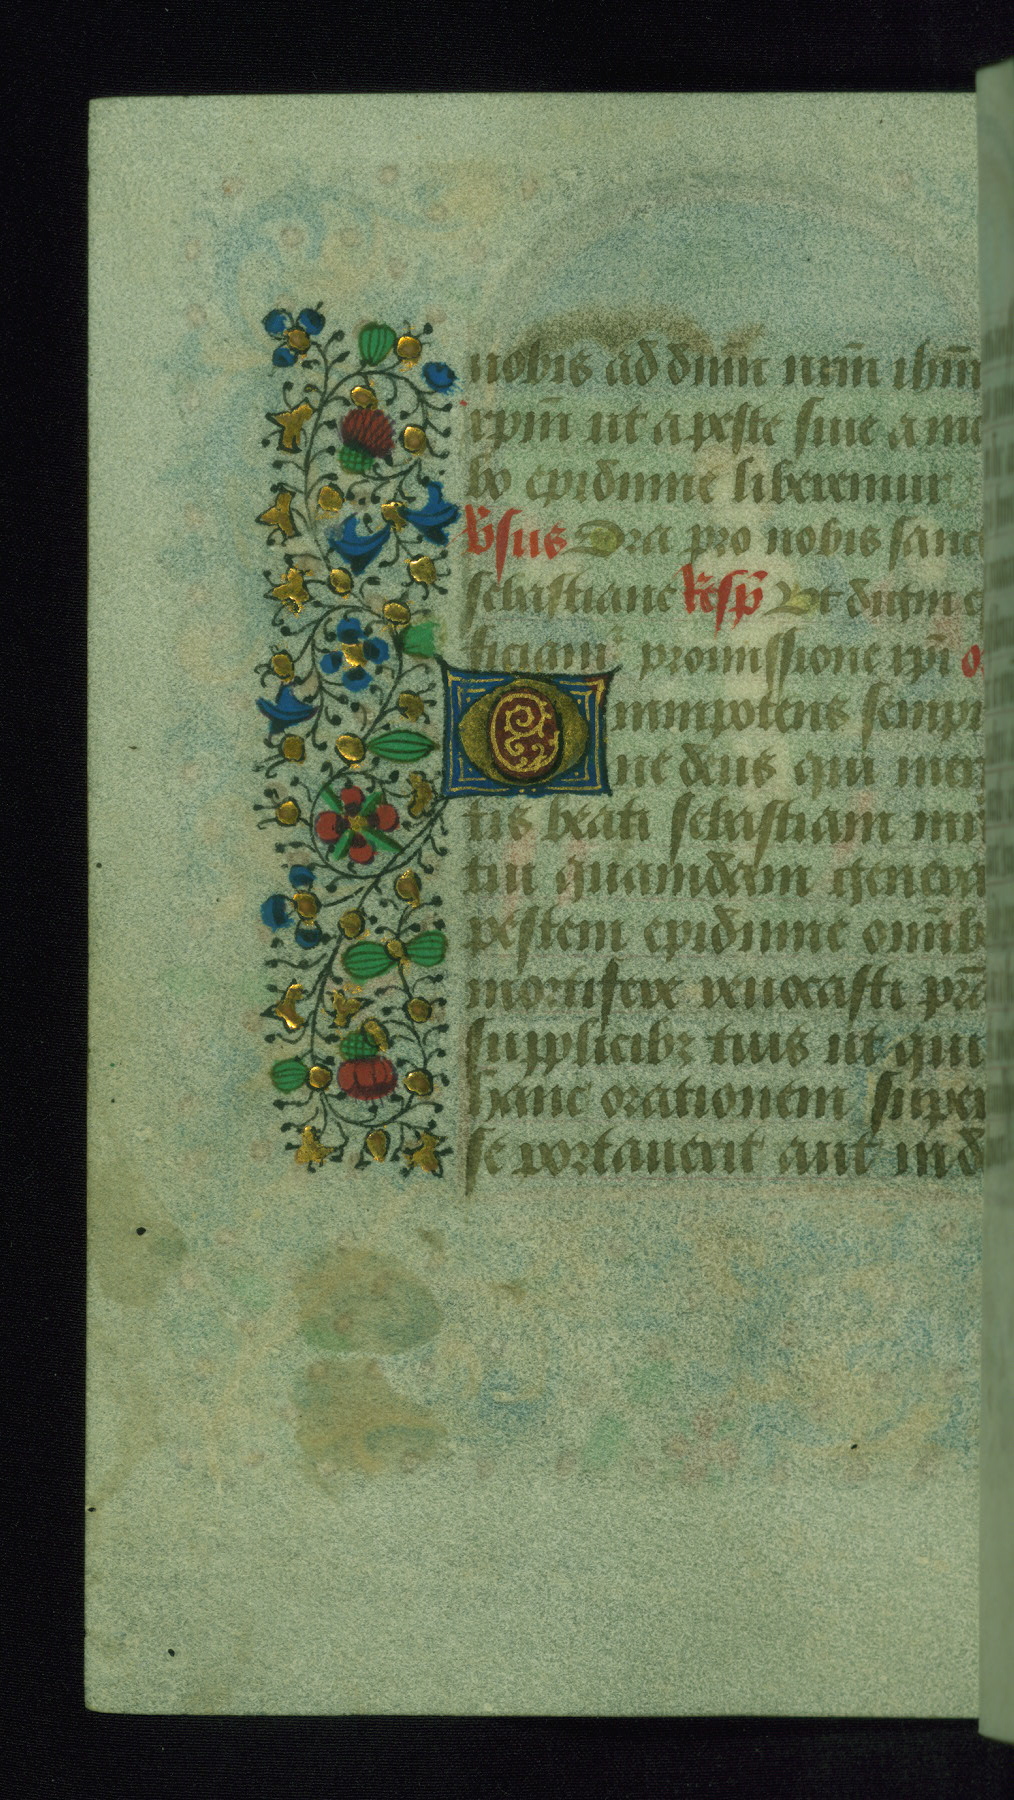 nobis ad dnm nrm ihm
xpm ut a peste siue a mor
bo epidimie liberemur
v̄sus Ora pro nobis sanc
sebastiane resp̄ Ut digni e
ficiam̄ promissione xpi o
mnipotens semp
ne deus qui meri
tis beati sebastiani mr
tiri quamdam genera
pestem epidimie omīb
mortifere reuocasti pr̄a
supplicibz tuis ut qui
hanc orationem super
se portauerit aut in d